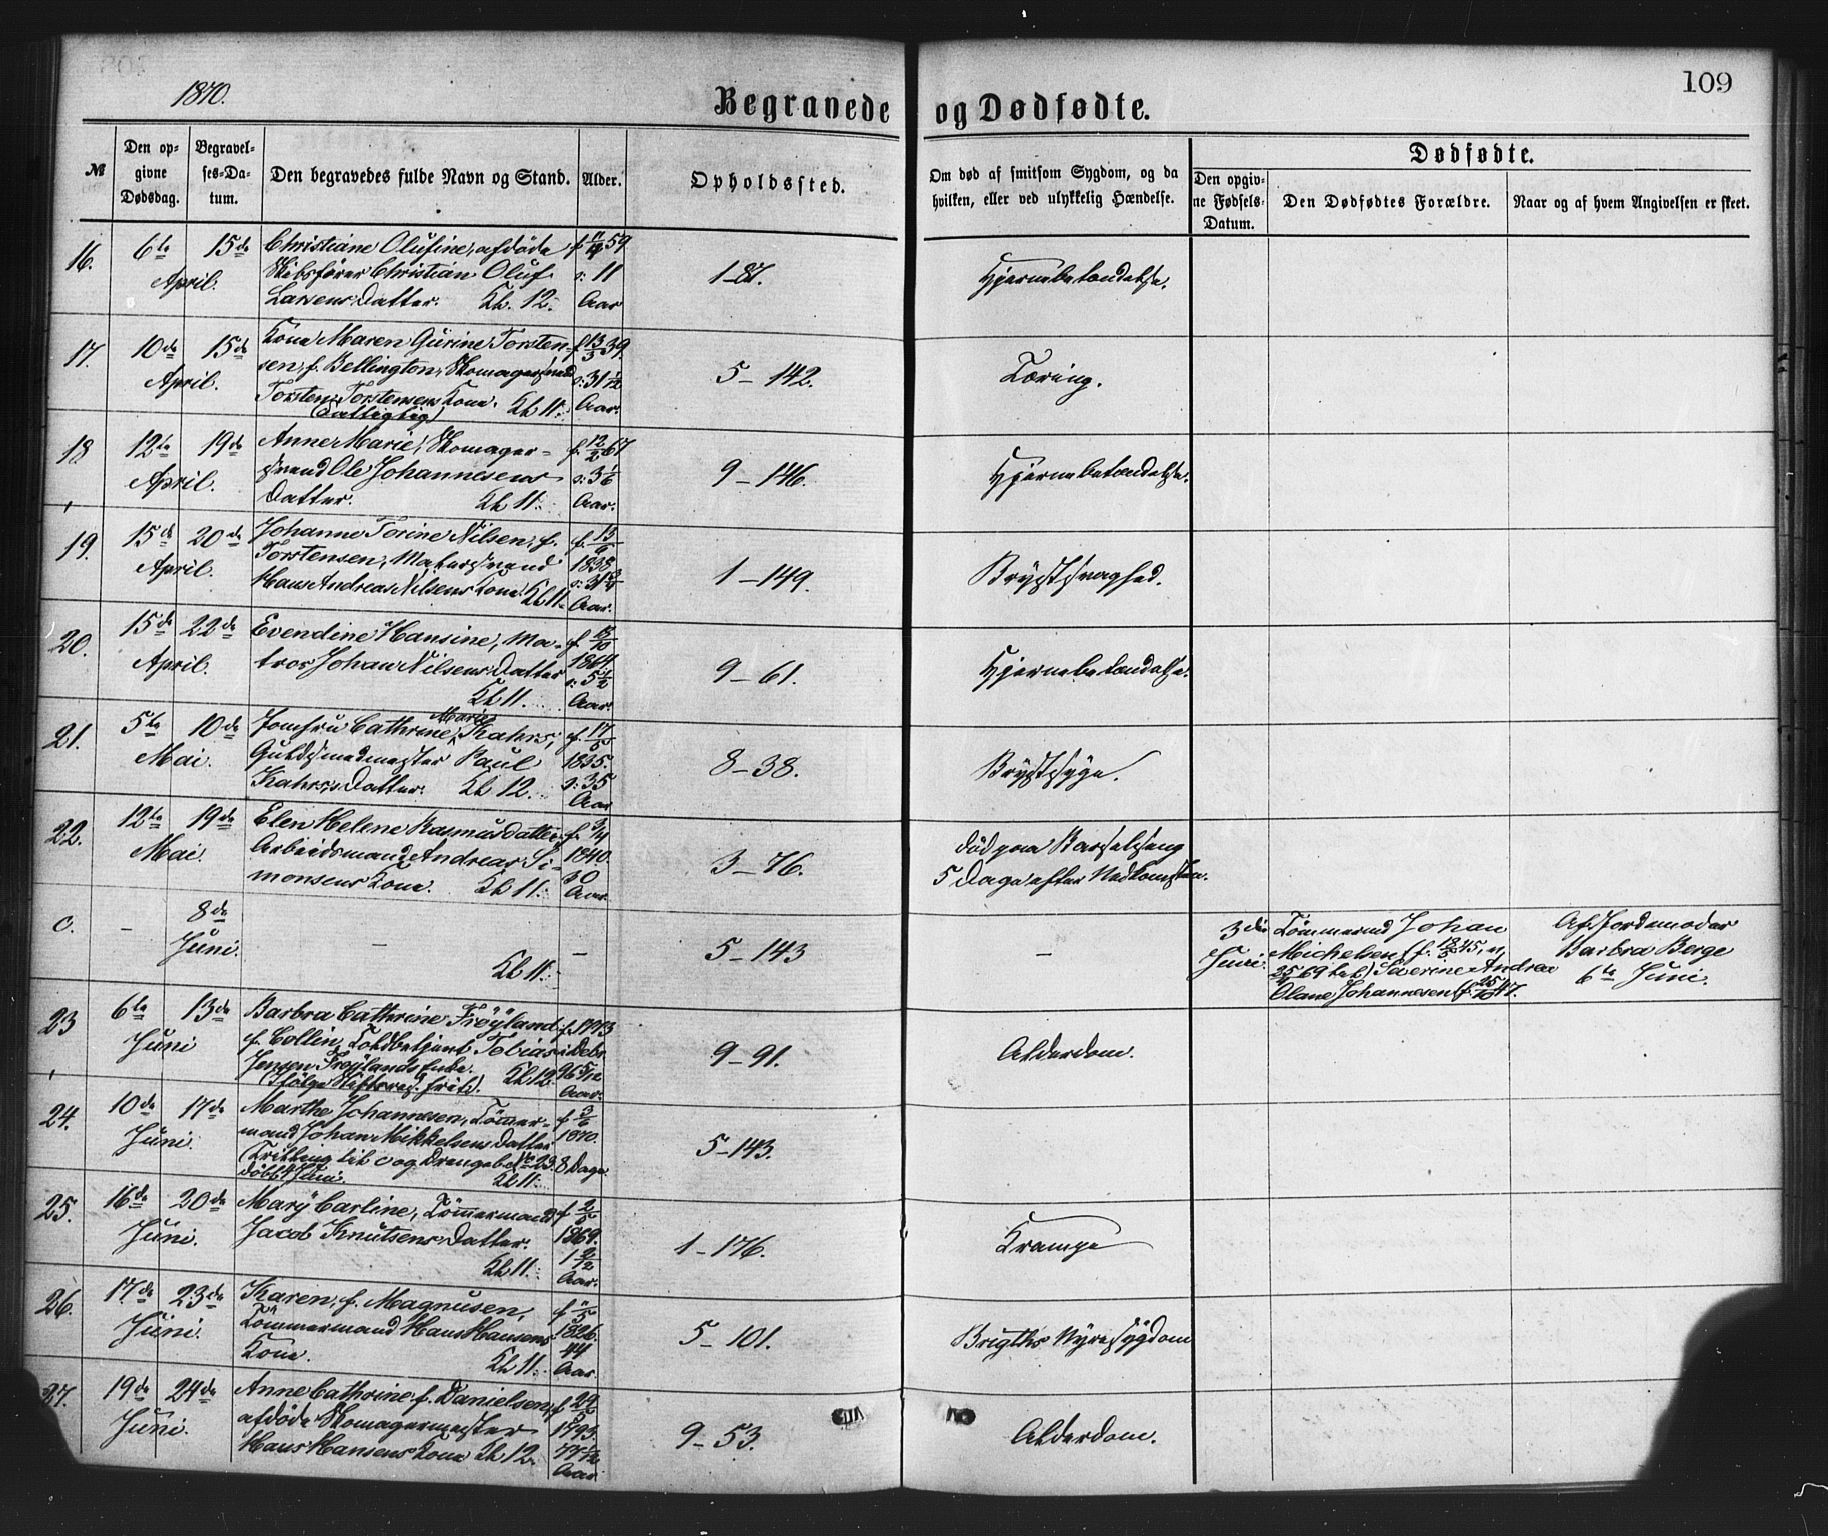 1870.
109
Begravede og Dødfødte.
№
Den opgivne Dødsdag.
Begravelses-Datum.
Den begravedes fulde Navn og Stand.
Alder.
Opholdssted.
Om død af smitsom Sygdom, og da hvilken, eller ved ulykkelig Hændelse.
Dødfødte.
Den opgivne Fødsels-Datum.
Den Dødfødtes Forældre.
Naar og af hvem Angivelsen er skeet.
16. 6te 15de April.
Christiane Olufine, afdöde
Skibsfører Christian Oluf
Larsens Datter. Kl. 12.
59
o: 11
Aar
1-87.
Hjernebetændelse.
17. 10de 15de April.
Kone Maren Gurine Torsten-
sen, f. Bellington, Skomagersvend
Torsten Torstensens Kone. Kl 11.
(Fattiglig)
f. 13/3 39.
o: 31 1/12
Aar.
5-142.
Tæring.
18 12te 19de April.
Anne Marie, Skomager-
svend Ole Johannesens
Datter. Kl 11.
f. 12/2 67
o: 3 1/6
Aar.
9-146.
Hjernebetændelse.
19. 15de 20de April.
Johanne Torine Nilsen, f.
Torstensen, Malersvend
Hans Andreas Nilsens Kone. Kl 11.
1838
o: 31 3/4
Aar.
1-149.
Brystsvaghed.
20. 15de 22de April.
Evendine Hansine, Ma-
tros Johan Nilsens Datter
Kl 11.
f. 13/10
1864.
o: 5 1/2
Aar.
9-61.
Hjernebetændelse.
21. 5te 10de Mai.
Jomfru Cathrine Marie Kahrs,
Guldsmedmester Paul
Kahrs's Datter. Kl 12.
f. 17/5
1835.
o: 35
Aar
8-38.
Brystsyge.
22. 12te 19de Mai.
Elen Helene Rasmusdatter,
Arbeidsmand Andreas Si-
monsens Kone. Kl 11.
f. 3/4
1840.
30
Aar
3-76.
død paa Barselseng
5 Dage efter Nedkomsten.
c. - 8de Juni.
-
Kl 11.
-
5-143
-
3die Juni.
Tömmermd Johan
Michelsen (f. 18/5 45,
69 Severine Andrea
Olane Johannesen (f. 25/10 47.
Af Jordemoder
Barbra Berge
6te Juni.
23 6te 13de Juni
Barbra Cathrine Fröÿland
f. Collin, Toldbetjent Tobias
Jensen Fröÿlands Enke.
Kl 12.
f. 1773
i Debr
96 5/12
Aar.
9-91.
Alderdom.
24. 10de 17de Juni.
Marthe Johannesen, Tömmer-
mand Johan Mikkelsens Datter
(Tvilling til c og Drengebd No 23.
döbt 4 Juni. Kl 11.
f. 3/6
1870.
8 Dage
5-143.
25. 16de 20de Juni.
Marÿ Carline, Tömmermand
Jacob Knutsens Datter.
Kl 11.
f. 2/5
1869.
Aar.
1-176.
Krampe
26. 17de 23de Juni.
Karen, f. Magnusen,
Tömmermand Hans Hansens
Kone. Kl 11.
1826.
44
Aar
5-101.
Brigths Nyresÿgdom
27. 19de 24de Juni.
Anne Cathrine, f. Danielsen,
afdöde Skomagermester
Hans Hansens Kone Kl 12.
1793.
Aar
9-53.
Alderdom.